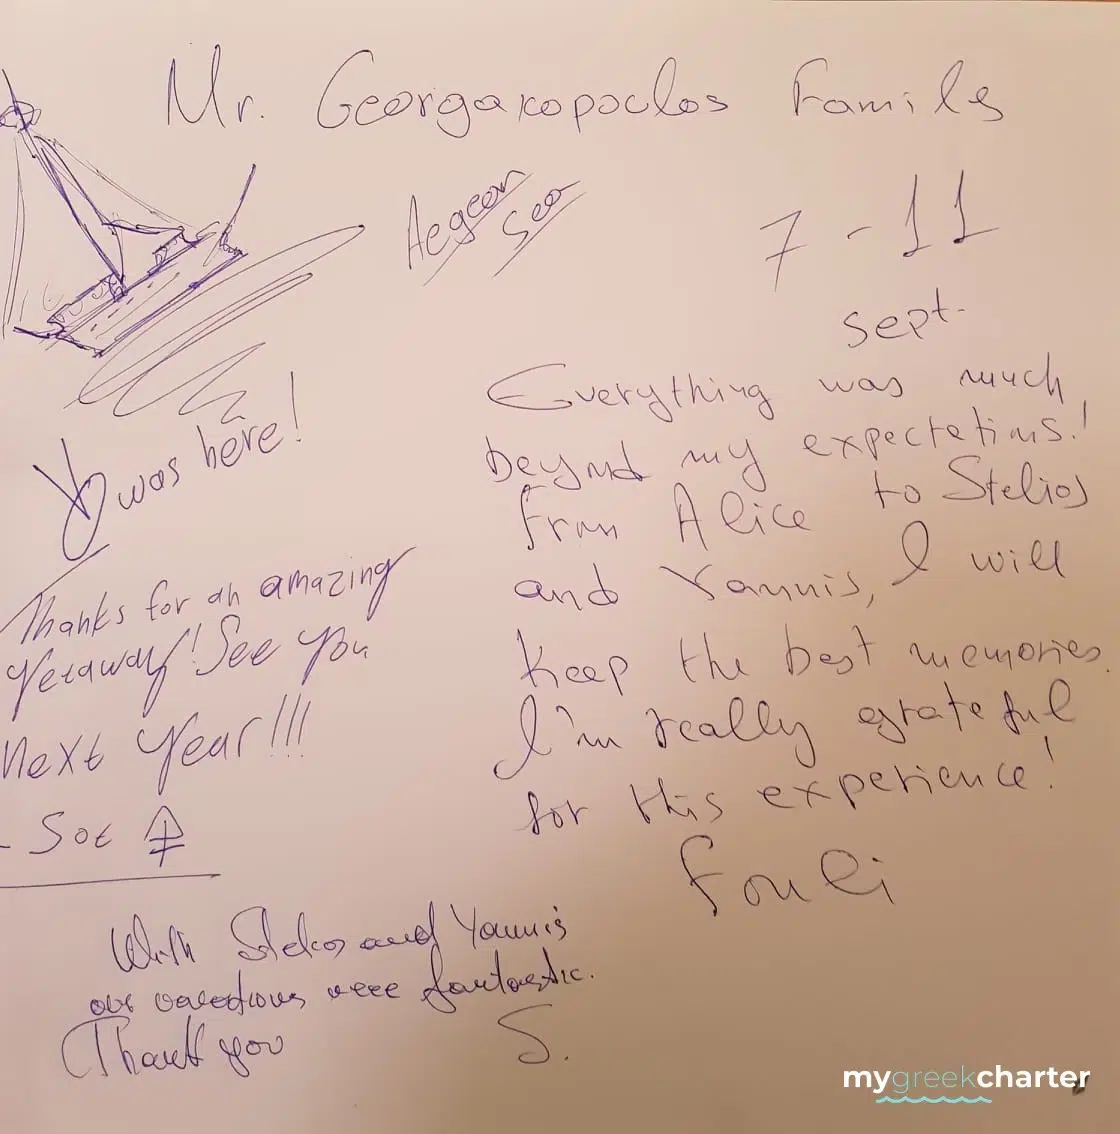 Mr. Georgakopoulos Family
Aegean
Sea
7 - 11
sept.
was here!
Thanks for an amazing
getaway! See you
next year!!!
- Sot
Everything was much
beyond my expectations!
From Alice to Stelios
and Yannis, I will
keep the best memories.
I'm really grateful
for this experience!
Fouli
With Stelios and Yannis
our vacations were fantastic.
Thank you
S.
mygreekcharter